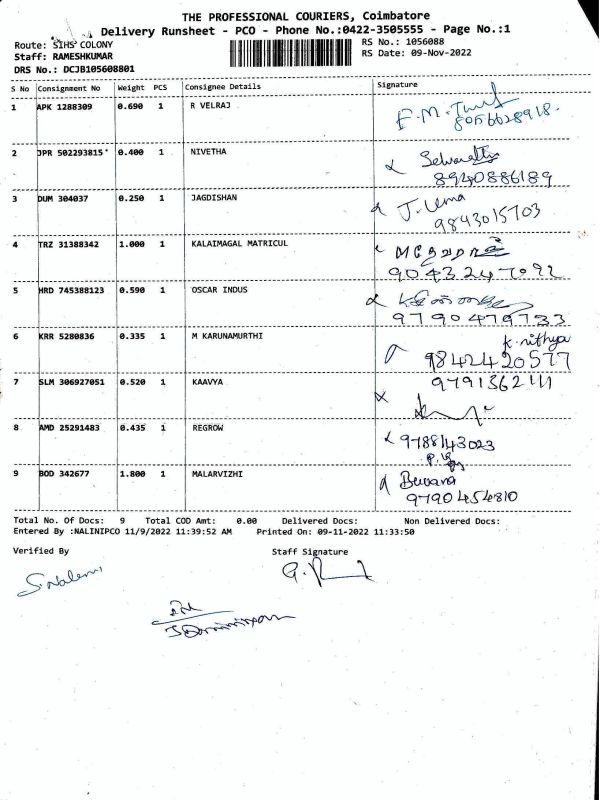 THE PROFESSIONAL COURIERS, Coimbatore
Delivery Runsheet - PCO - Phone No.:0422-3505555 - Page No.:1
Route: SIHS COLONY
RS No.: 1056088
Staff: RAMESHKUMAR
RS Date: 09-Nov-2022
DRS No.: DCJB105608801
S No Consignment No Weight PCS Consignee Details Signature
1 APK 1288309 0.690 1 R VELRAJ
8056628918
2 JPR 502293815 0.400 1 NIVETHA
8940886189
3 DUM 304037 0.250 1 JAGDISHAN J. Uma
9843015703
4 TRZ 31388342 1.000 1 KALAIMAGAL MATRICUL
9043247092
5 HRD 745388123 0.590 1 OSCAR INDUS
9790479733
6 KRR 5280836 0.335 1 M KARUNAMURTHI K. nithya
9842420577
7 SLM 306927051 0.520 1 KAAVYA 9791362111
8 AMD 25291483 0.435 1 REGROW 9788143023
9 BOD 342677 1.800 1 MALARVIZHI
9790454810
Total No. Of Docs: 9 Total COD Amt: 0.00 Delivered Docs: Non Delivered Docs:
Entered By :NALINIPCO 11/9/2022 11:39:52 AM Printed On: 09-11-2022 11:33:50
Verified By Staff Signature